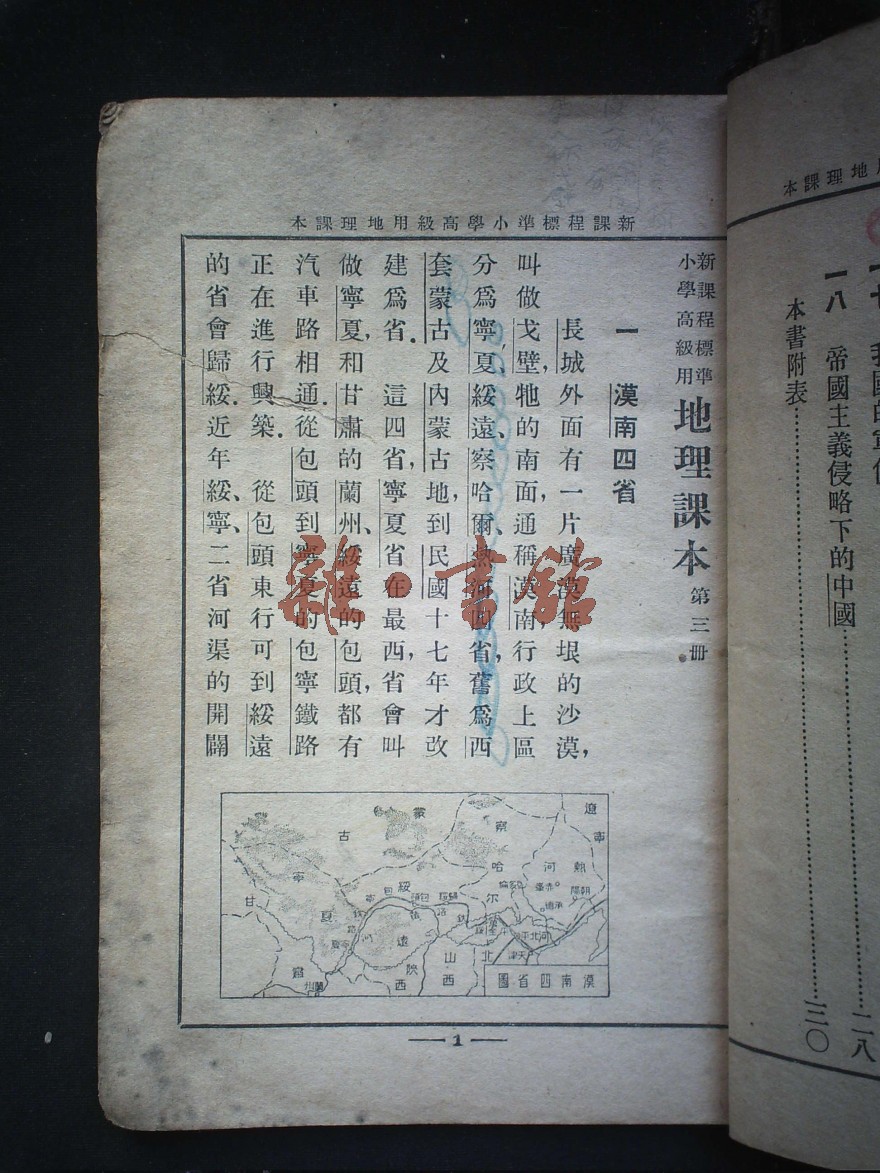 新課程標準小學高級用地理課本
新課程標準
小學高級用
地理課本 第三册
一 漠南四省
長城外面有一片廣漠無垠的沙漠，
叫做戈壁，牠的南面，通稱漠南，行政上區
分爲寧夏、綏遠、察哈爾、熱河四省，舊爲西
套蒙古及內蒙古地，到民國十七年才改
建爲省． 這四省，寧夏省在最西，省會叫
做寧夏，和甘肅的蘭州、綏遠的包頭，都有
汽車路相通．從包頭到寧夏的包寧鐵路
正在進行興築． 從包頭東行可到綏遠
的省會歸綏．近年綏、寧、二省河渠的開闢
遼寧
熱河
察哈尔
蒙古
綏遠
寧夏
甘肅
陝西
山西
河北
北平
天津
赤峯
朝陽
承德
蘭州
漠南四省圖
1
地理課本
一七
一八 帝國主義侵略下的中國……二八
本書附表……三〇
雜·書館